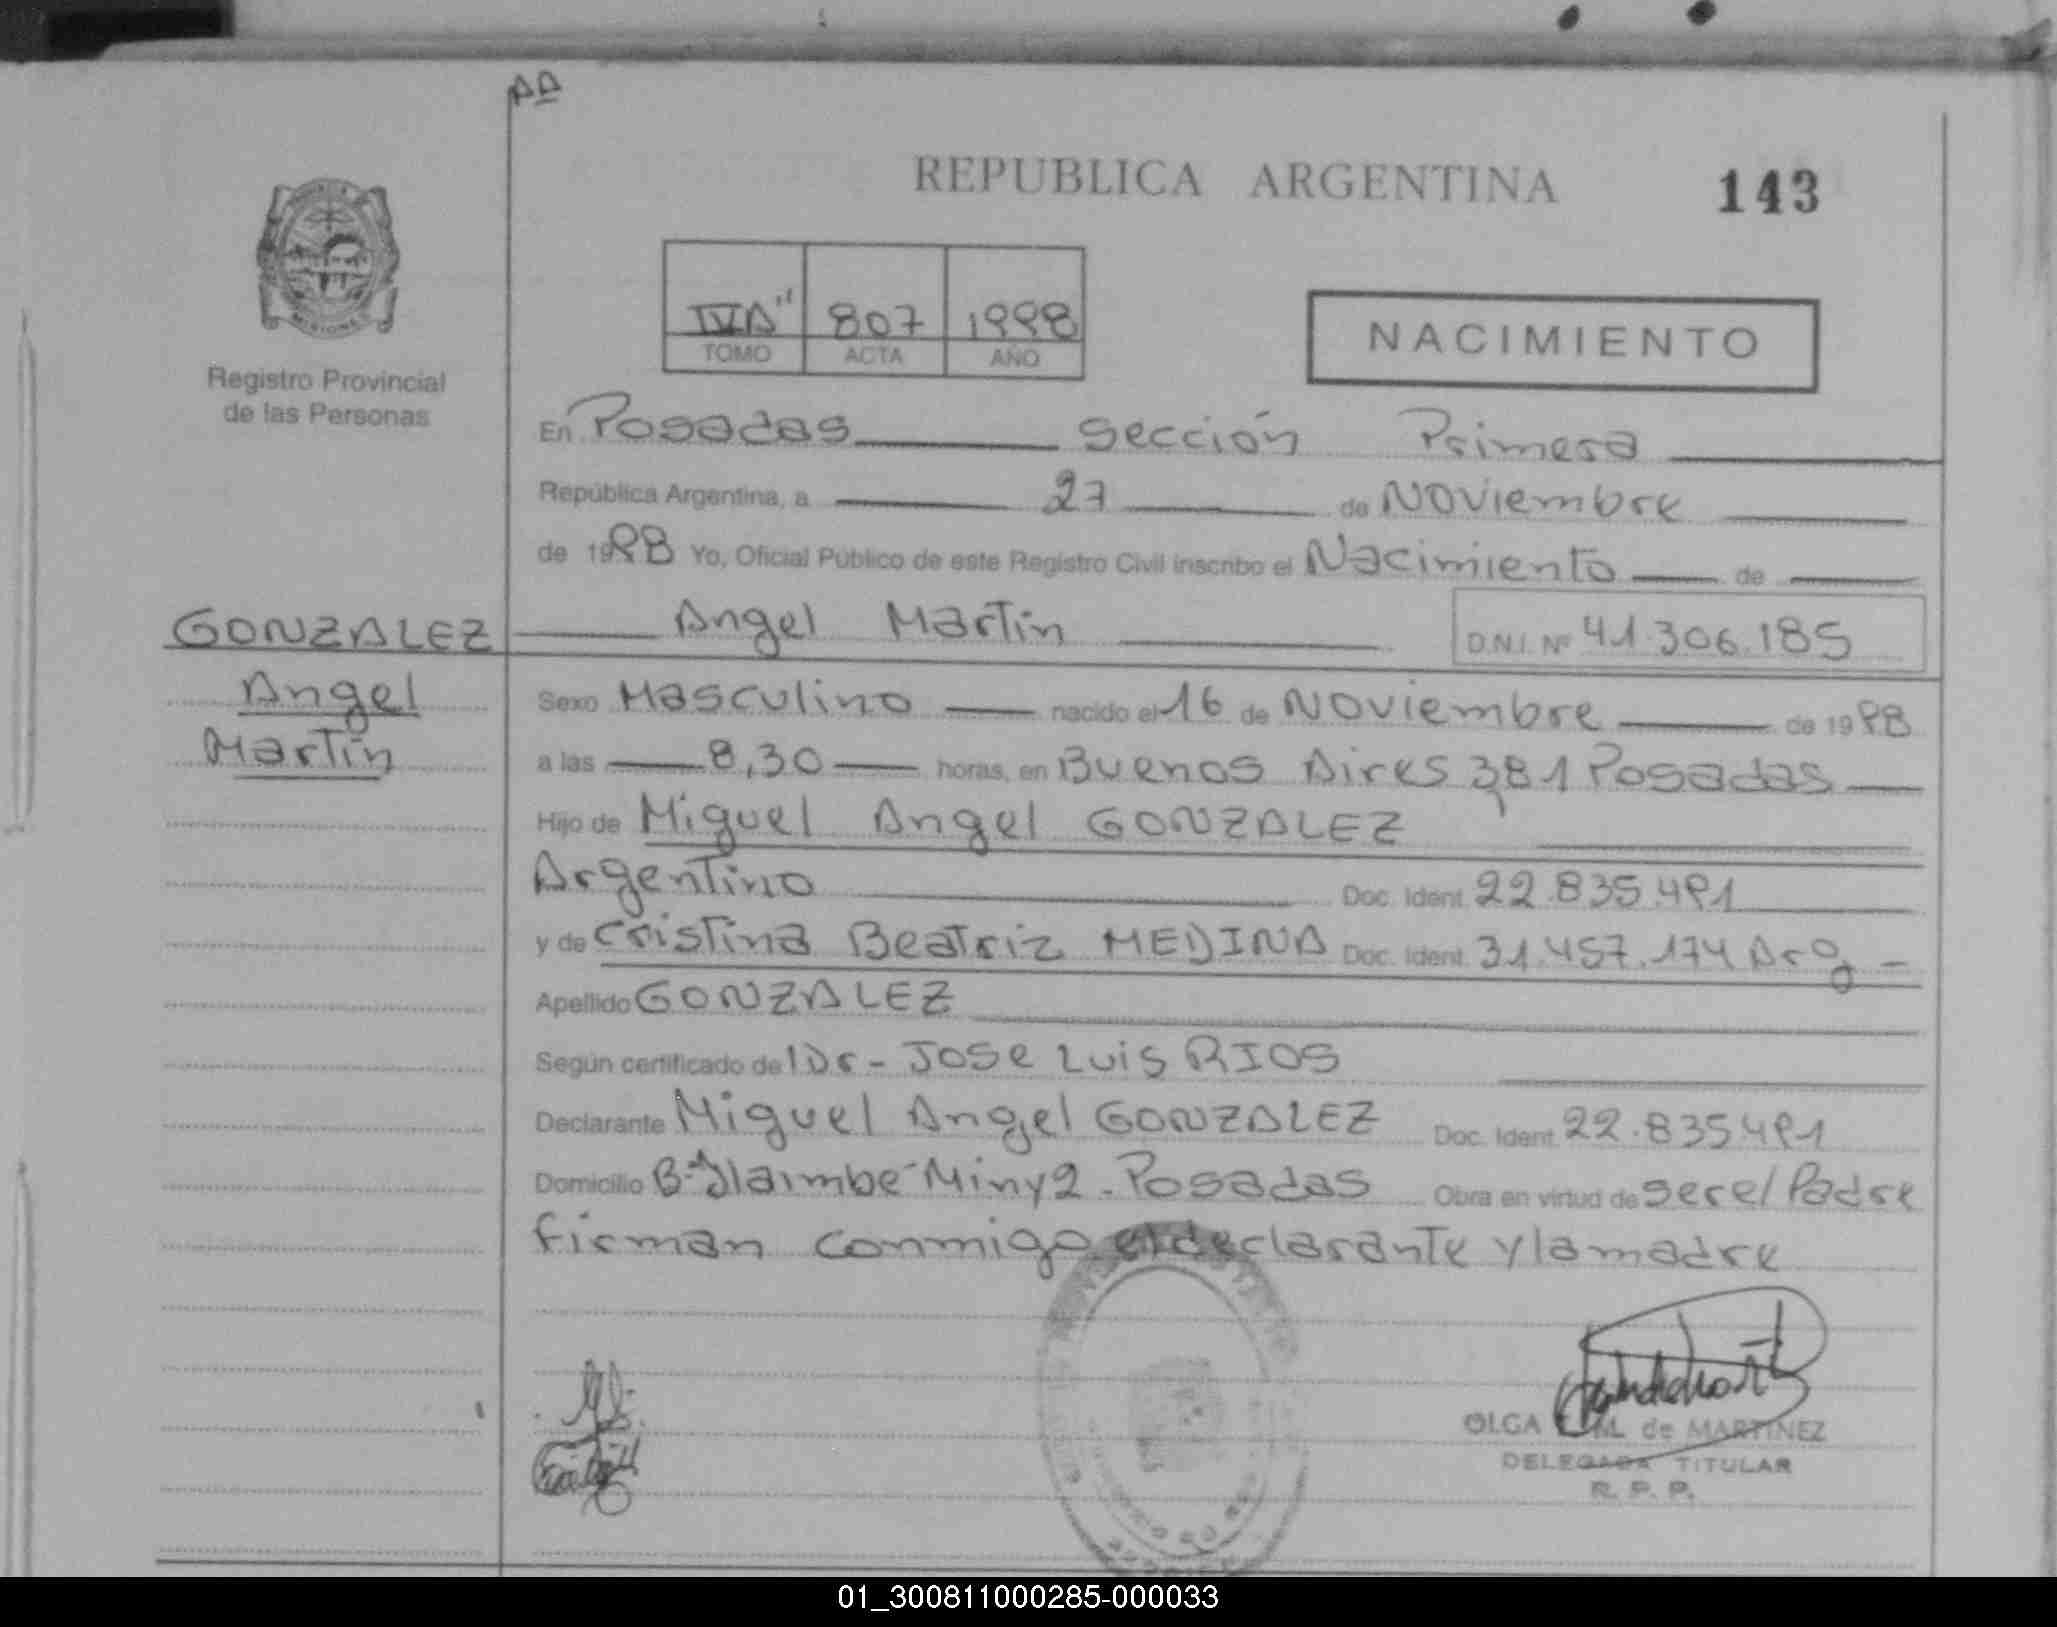 AA
REPUBLICA ARGENTINA 143
IV"A" 807 1998
TOMO ACTA AÑO
NACIMIENTO
MISIONES
Registro Provincial
de las Personas
En Posadas Sección Primera
República Argentina, a 27 de Noviembre
de 1998 Yo, Oficial Público de este Registro Civil inscribo el Nacimiento de
GONZALEZ Angel Martín D.N.I. Nº 41.306.185
Angel
Martín
Sexo Masculino nacido el 16 de Noviembre de 1998
a las 8,30 horas, en Buenos Aires 381 Posadas
Hijo de Miguel Angel GONZALEZ
Argentino Doc. Ident. 22.835.491
y de Cristina Beatriz MEDINA Doc. Ident. 31.457.174 Arg
Apellido GONZALEZ
Según certificado del Dr - José Luis RIOS
Declarante Miguel Angel GONZALEZ Doc. Ident. 22.835491
Domicilio Miny 2 - Posadas Obra en virtud de ser el Padre
firman conmigo el declarante y la madre
OLGA M. de MARTINEZ
DELEGADA TITULAR
R. P. P.
01_300811000285-000033